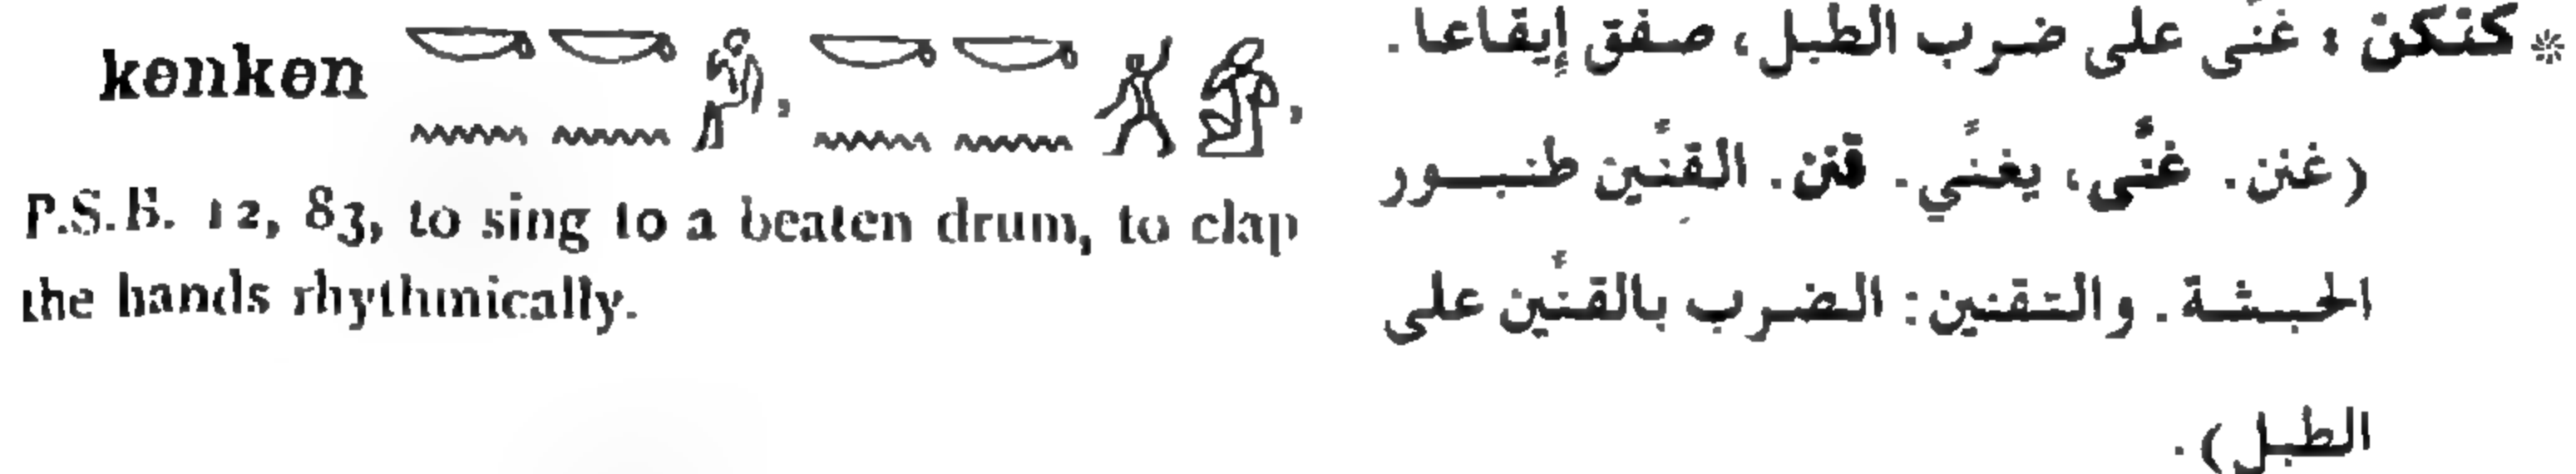 kenken 𓎡𓈖𓎡𓈖, 𓎡𓈖𓎡𓈖,
P.S.B. 12, 83, to sing to a beaten drum, to clap
the hands rhythmically.
* كنكن : غنَّى على ضرب الطبل، صفق إيقاعا.
(غنن. غنَّى، يغنَّي. قنن. القِنَّين طنبور
الحبشة. والتقنين: الضرب بالقنَّين على
الطبل).